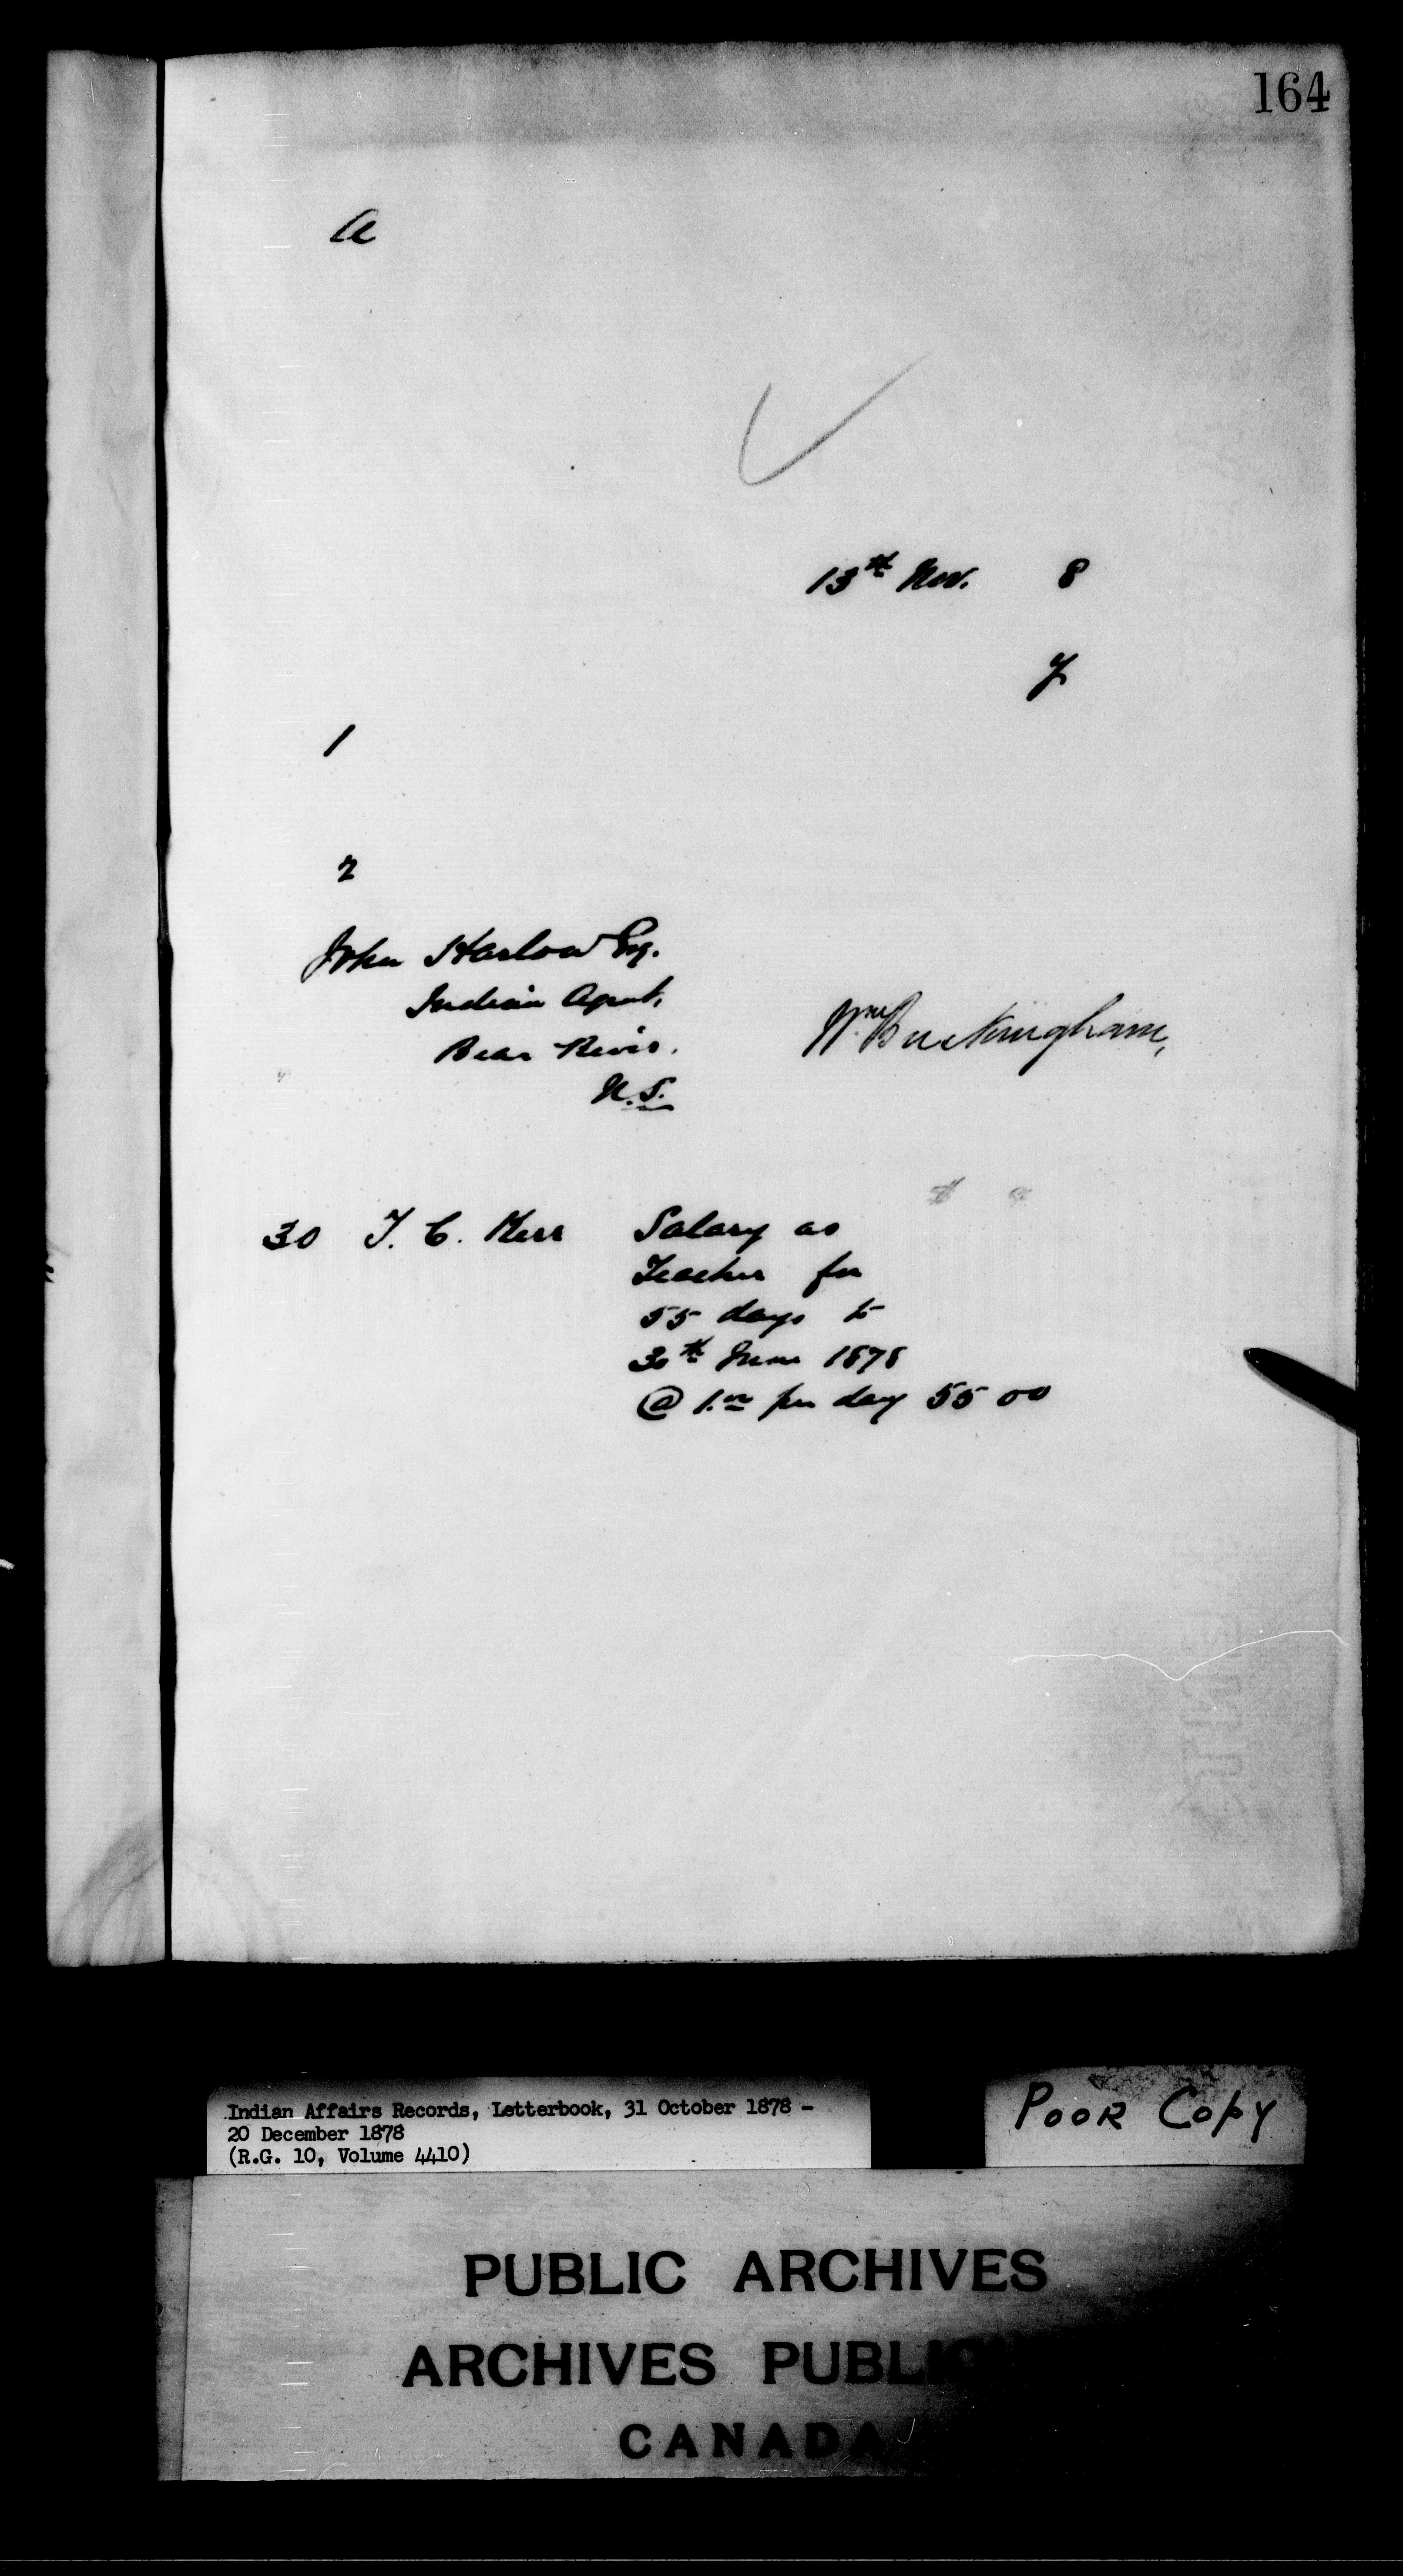 164
a
13th Nov. 8
y
1
2
John Harlow Esq.
Indian Agent,
Bear River.
N.S.
Wm Buckingham,
$ c
30 T. C. Kerr Salary as
Teacher for
55 days to
30th June 1878
@ 1.00 per day 55 00
Indian Affairs Records, Letterbook, 31 October 1878 -
20 December 1878
(R.G. 10, Volume 4410)
POOR COPY
PUBLIC ARCHIVES
ARCHIVES PUBLIC
CANADA